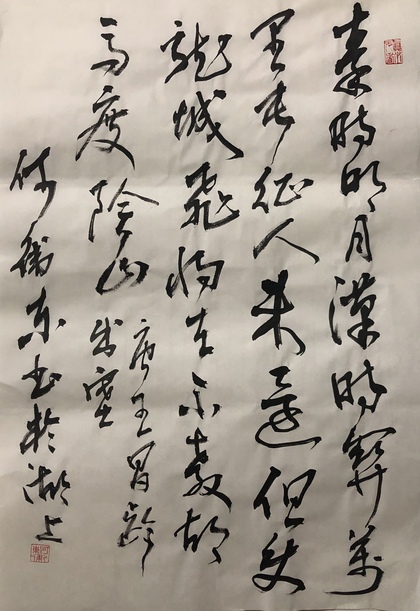 秦時明月漢時關萬
里長征人未還但使
龍城飛將在不教胡
馬度陰山
唐王昌齡
出塞
何衛東書於湖上